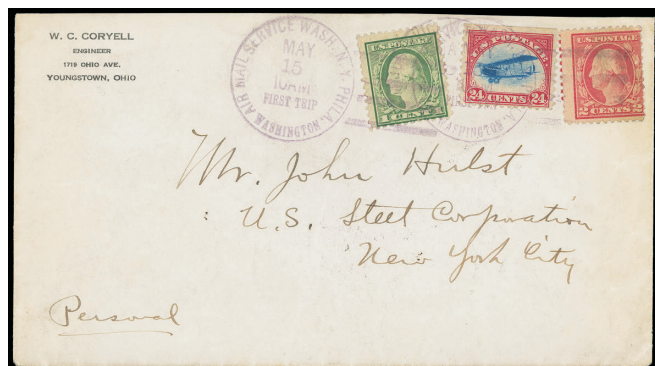 W. C. CORYELL
ENGINEER
1719 OHIO AVE.
YOUNGSTOWN, OHIO
AIR MAIL SERVICE WASH. N. Y. PHILA.
MAY
15
10AM
FIRST TRIP
WASHINGTON
U.S. POSTAGE
1 CENT 1
U.S. POSTAGE
24 CENTS 24
U.S. POSTAGE
2 CENTS 2
WASHINGTON
Mr. John Hulst
U.S. Steel Corporation
New York City
Personal